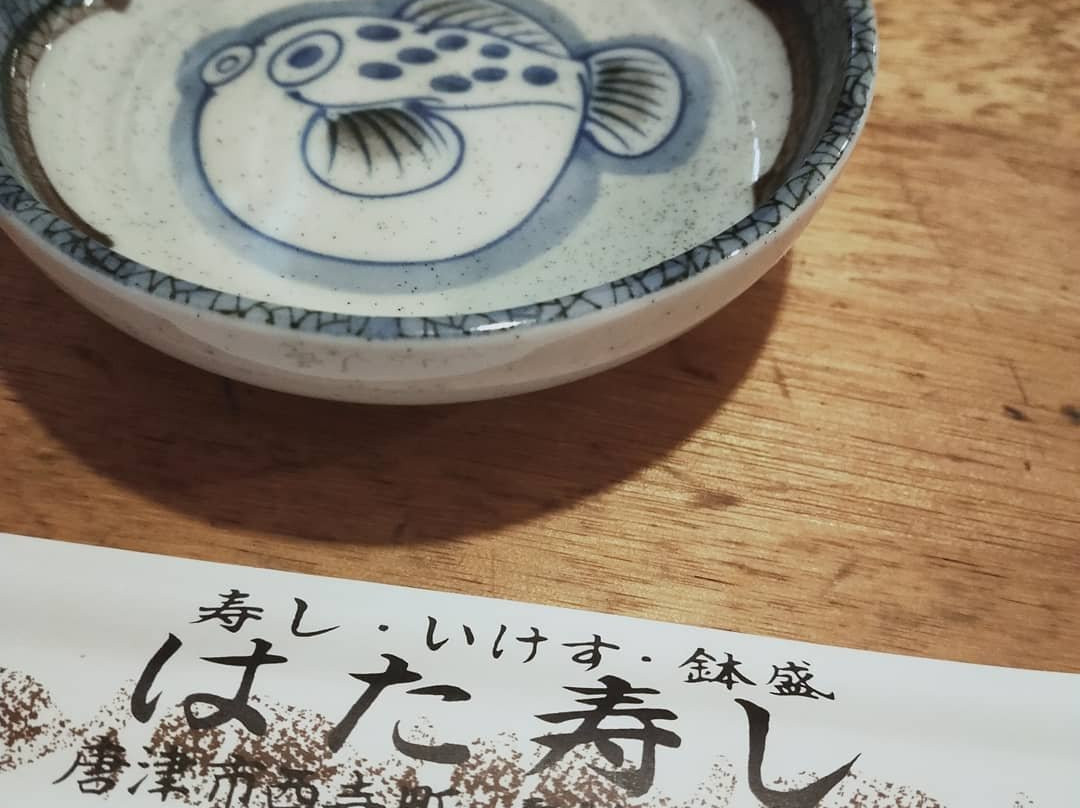 寿し・いけす・鉢盛
はた寿し
唐津市西寺町